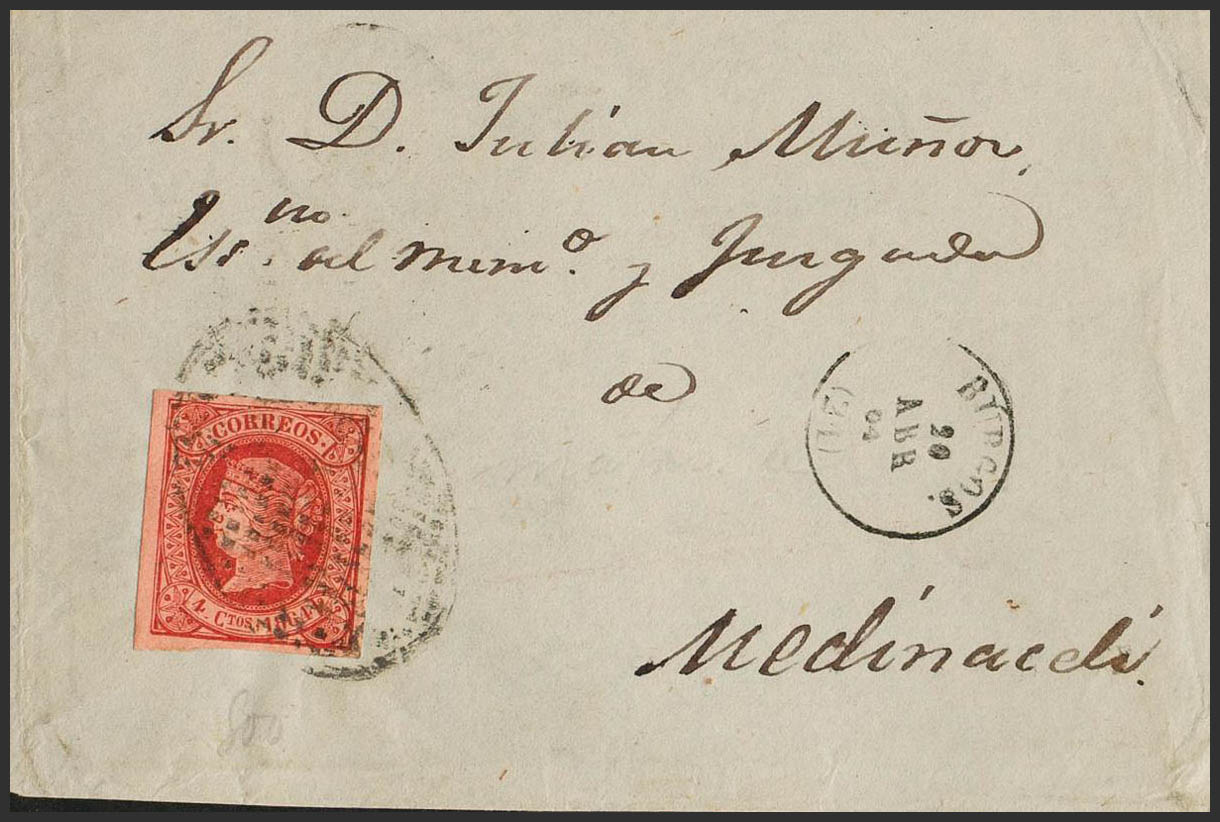 Sr. D. Julian Muñoz,
Essno. del Numo. y Juzgado
de
Medinaceli.
CORREOS.
4. CTOS
BURGOS.
20
ABR
64
(21)
800